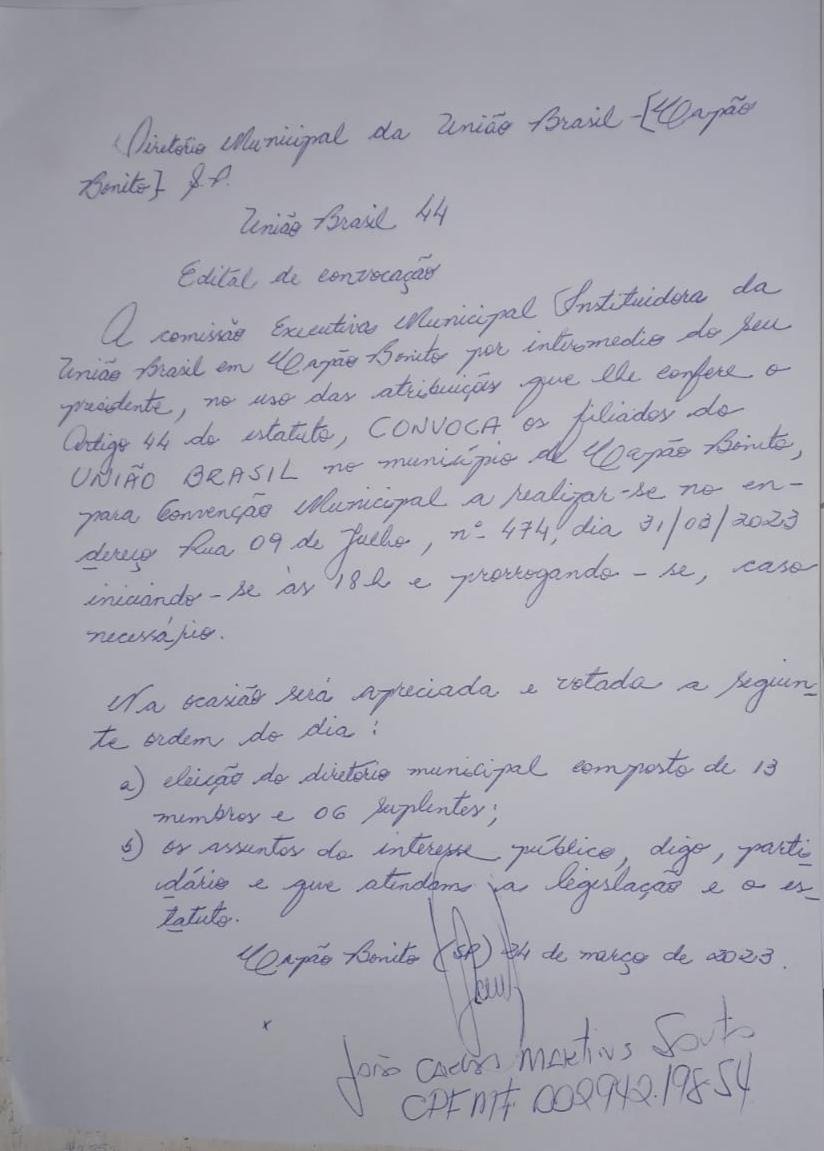 Diretório Municipal da União Brasil - [Capão
Bonito] S.P.
União Brasil 44
Edital de convocação
A comissão Executiva Municipal Instituidora da
União Brasil em Capão Bonito por intermedio do seu
presidente, no uso das atribuições que lhe confere o
Artigo 44 do estatuto, CONVOCA os filiados do
UNIÃO BRASIL no município de Capão Bonito,
para Convenção Municipal a realizar-se no en-
dereço Rua 09 de Julho, nº 474, dia 31/03/2023
iniciando-se às 18h e prorrogando-se, caso
necessário.
Na ocasião será apreciada e votada a seguin-
te ordem do dia:
a) eleição do diretório municipal composto de 13
membros e 06 suplentes;
b) os assuntos do interesse público, digo, parti-
dário e que atendam a legislação e o es-
tatuto.
Capão Bonito (SP) 24 de março de 2023.
João Carlos Martins Souto
CPF MF 002942.198-54